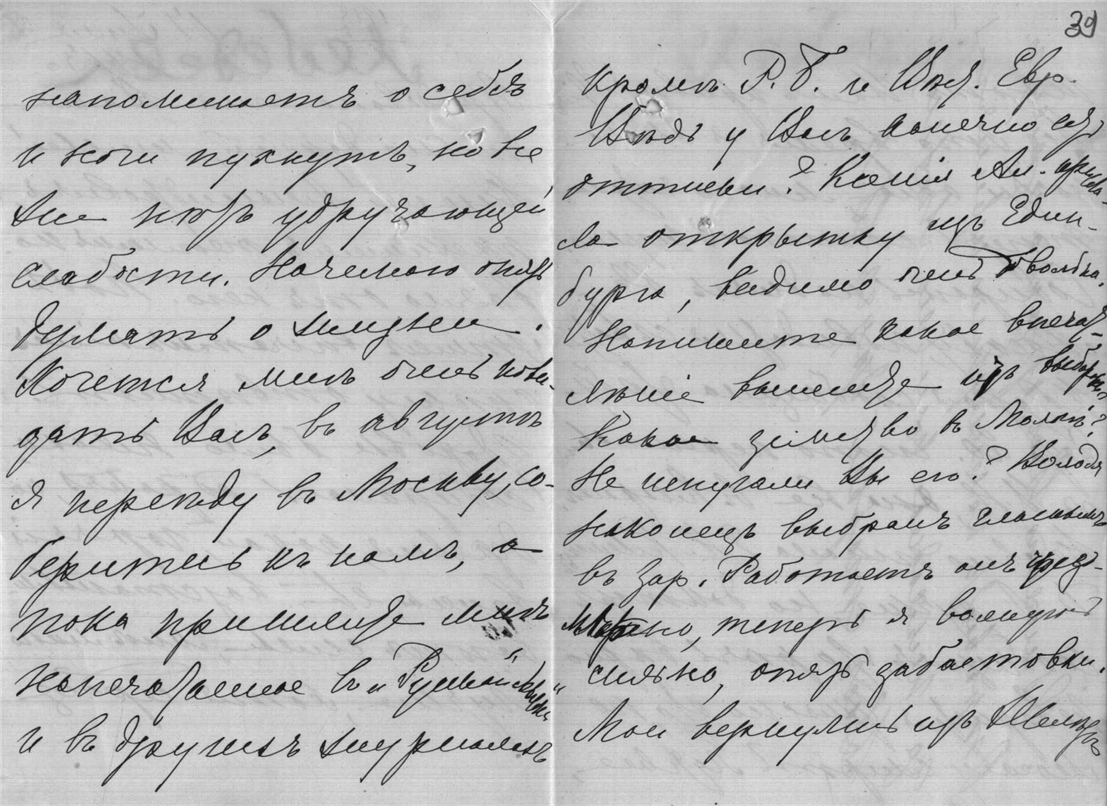 напоминаетъ о себѣ
и ноги пухнутъ, но не
та угнетающей
слабости. Начинаю опять
думать о жизни.
Хочется мнѣ очень пови-
дать Васъ, въ августѣ
я переѣду въ Москву, со-
беритесь къ намъ, а
пока пришлите мнѣ
напечатанное въ „Русской Мысли“
и въ другихъ журналахъ
39
кромѣ Р. Б. и Вѣст. Евр.
Вѣдь у Васъ конечно есть
оттиски? Ал. присла-
ла открытку изъ Един-
бурга, видимо очень довольна.
Напишите какое впечат-
лѣніе вынесли изъ
Какое земство въ
Не испугали Вы его? Володя
наконецъ выбранъ гласнымъ
въ Зар. Работаетъ онъ
теперь я волнуюсь
сильно, опять забастовки.
Мои вернулись изъ